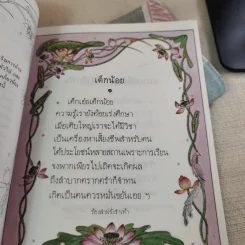 เด็กน้อย
เด็กเอ๋ยเด็กน้อย
ความรู้เรายังด้อยเร่งศึกษา
เมื่อเติบใหญ่เราจะได้มีวิชา
เป็นเครื่องหาเลี้ยงชีพสำหรับตน
ได้ประโยชน์หลายสถานเพราะการเรียน
จงพากเพียรไปเถิดจะเกิดผล
ถึงลำบากตรากตรำก็จำทน
เกิดเป็นคนควรหมั่นขยันเอย ฯ